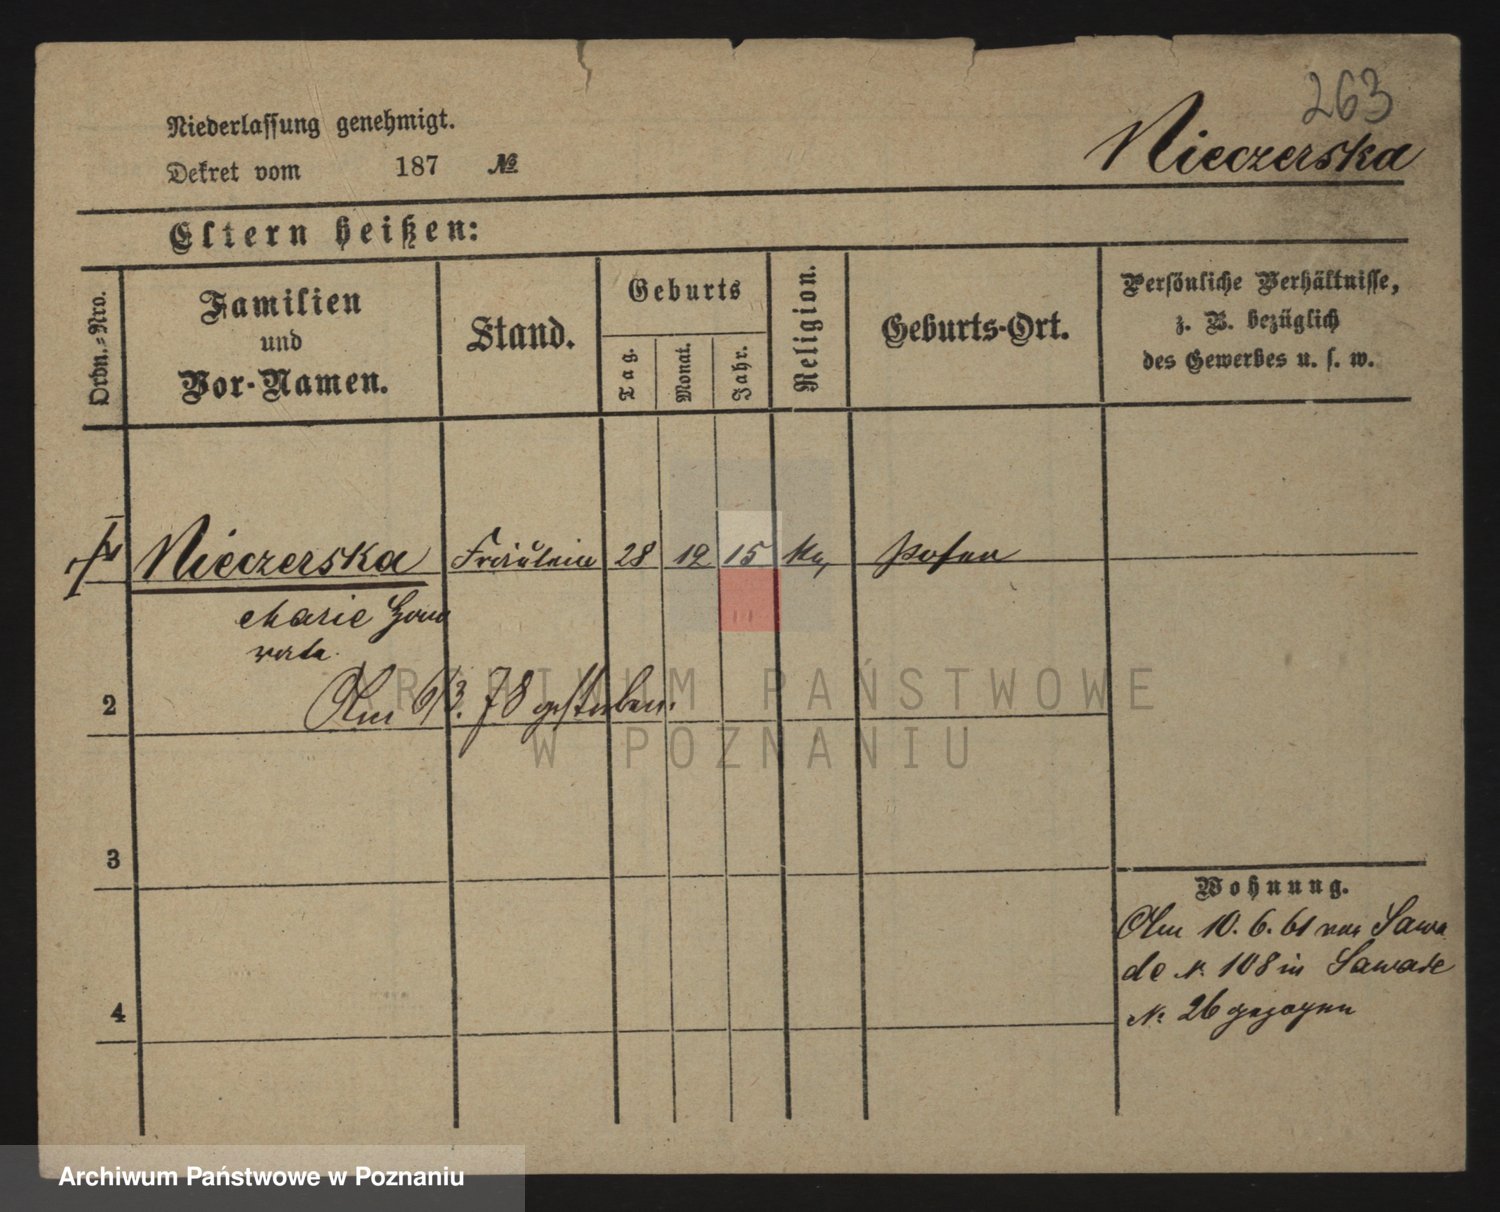 263
Niederlassung genehmigt.
Dekret vom 187 №
Nieczerska
Eltern heißen:
Ordn.-Nro.
Familien
und
Vor-Namen.
Stand.
Geburts
Tag.
Monat.
Jahr.
Religion.
Geburts-Ort.
Persönliche Verhältnisse,
z. B. bezüglich
des Gewerbes u. s. w.
Nieczerska Fräulein 28 12 15 Posen
Marie Hono
rata.
Am 6/3. 78 gestorben.
2
ARCHIWUM PAŃSTWOWE
W POZNANIU
3
Wohnung.
Am 10. 6. 61 von Sawa
de № 108 in Sawade
№ 26 gezogen
4
Archiwum Państwowe w Poznaniu